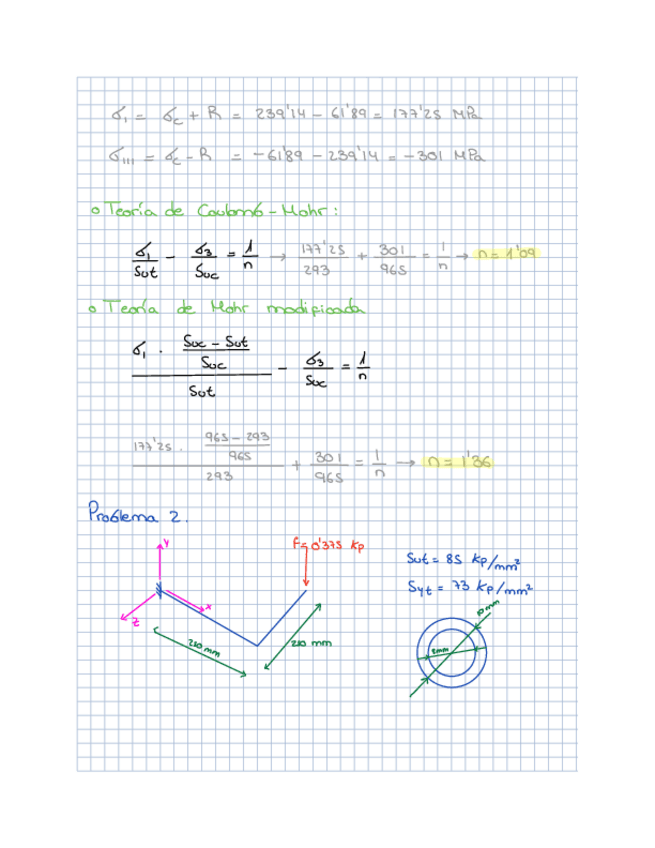 σI = σc + R = 239'14 - 61'89 = 177'25 MPa
σIII = σc - R = -61'89 - 239'14 = -301 MPa
o Teoría de Coulomb - Mohr:
σ1/Sut - σ3/Suc = 1/n → 177'25/293 + 301/965 = 1/n → n = 1'09
o Teoría de Mohr modificada
σ1 · (Suc - Sut)/Suc / Sut - σ3/Suc = 1/n
177'25 · (965 - 293)/965 / 293 + 301/965 = 1/n → n = 1'36
Problema 2.
y
F = 0'375 Kp
x
z
210 mm
210 mm
Sut = 85 Kp/mm²
Syt = 73 Kp/mm²
10 mm
8mm